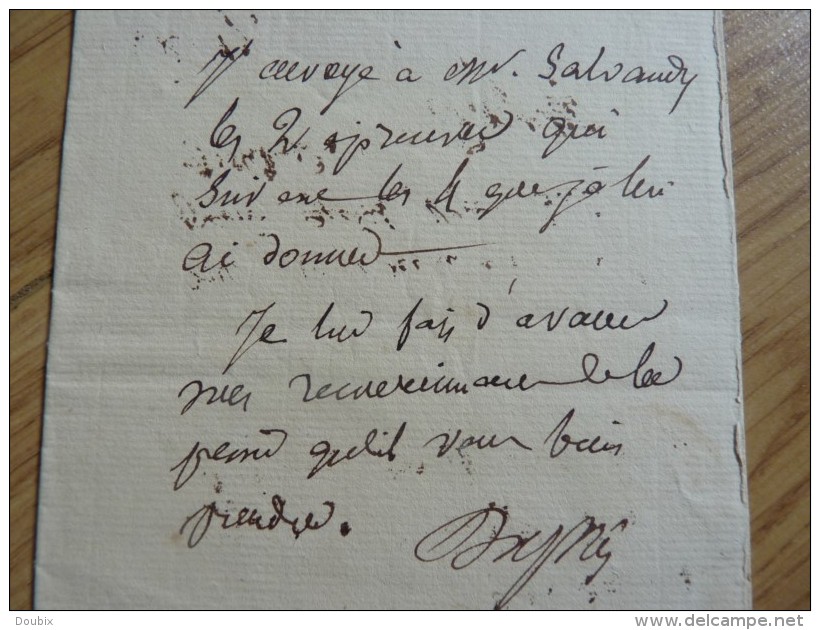 J'envoye à Mr. Salvandy
les 2 epreuves qui
suivent les 4 que je lui
ai données
Je lui fais d'avance
mes remerciements de la
peine qu'il veut bien
prendre.
Doubix
www.delcampe.net